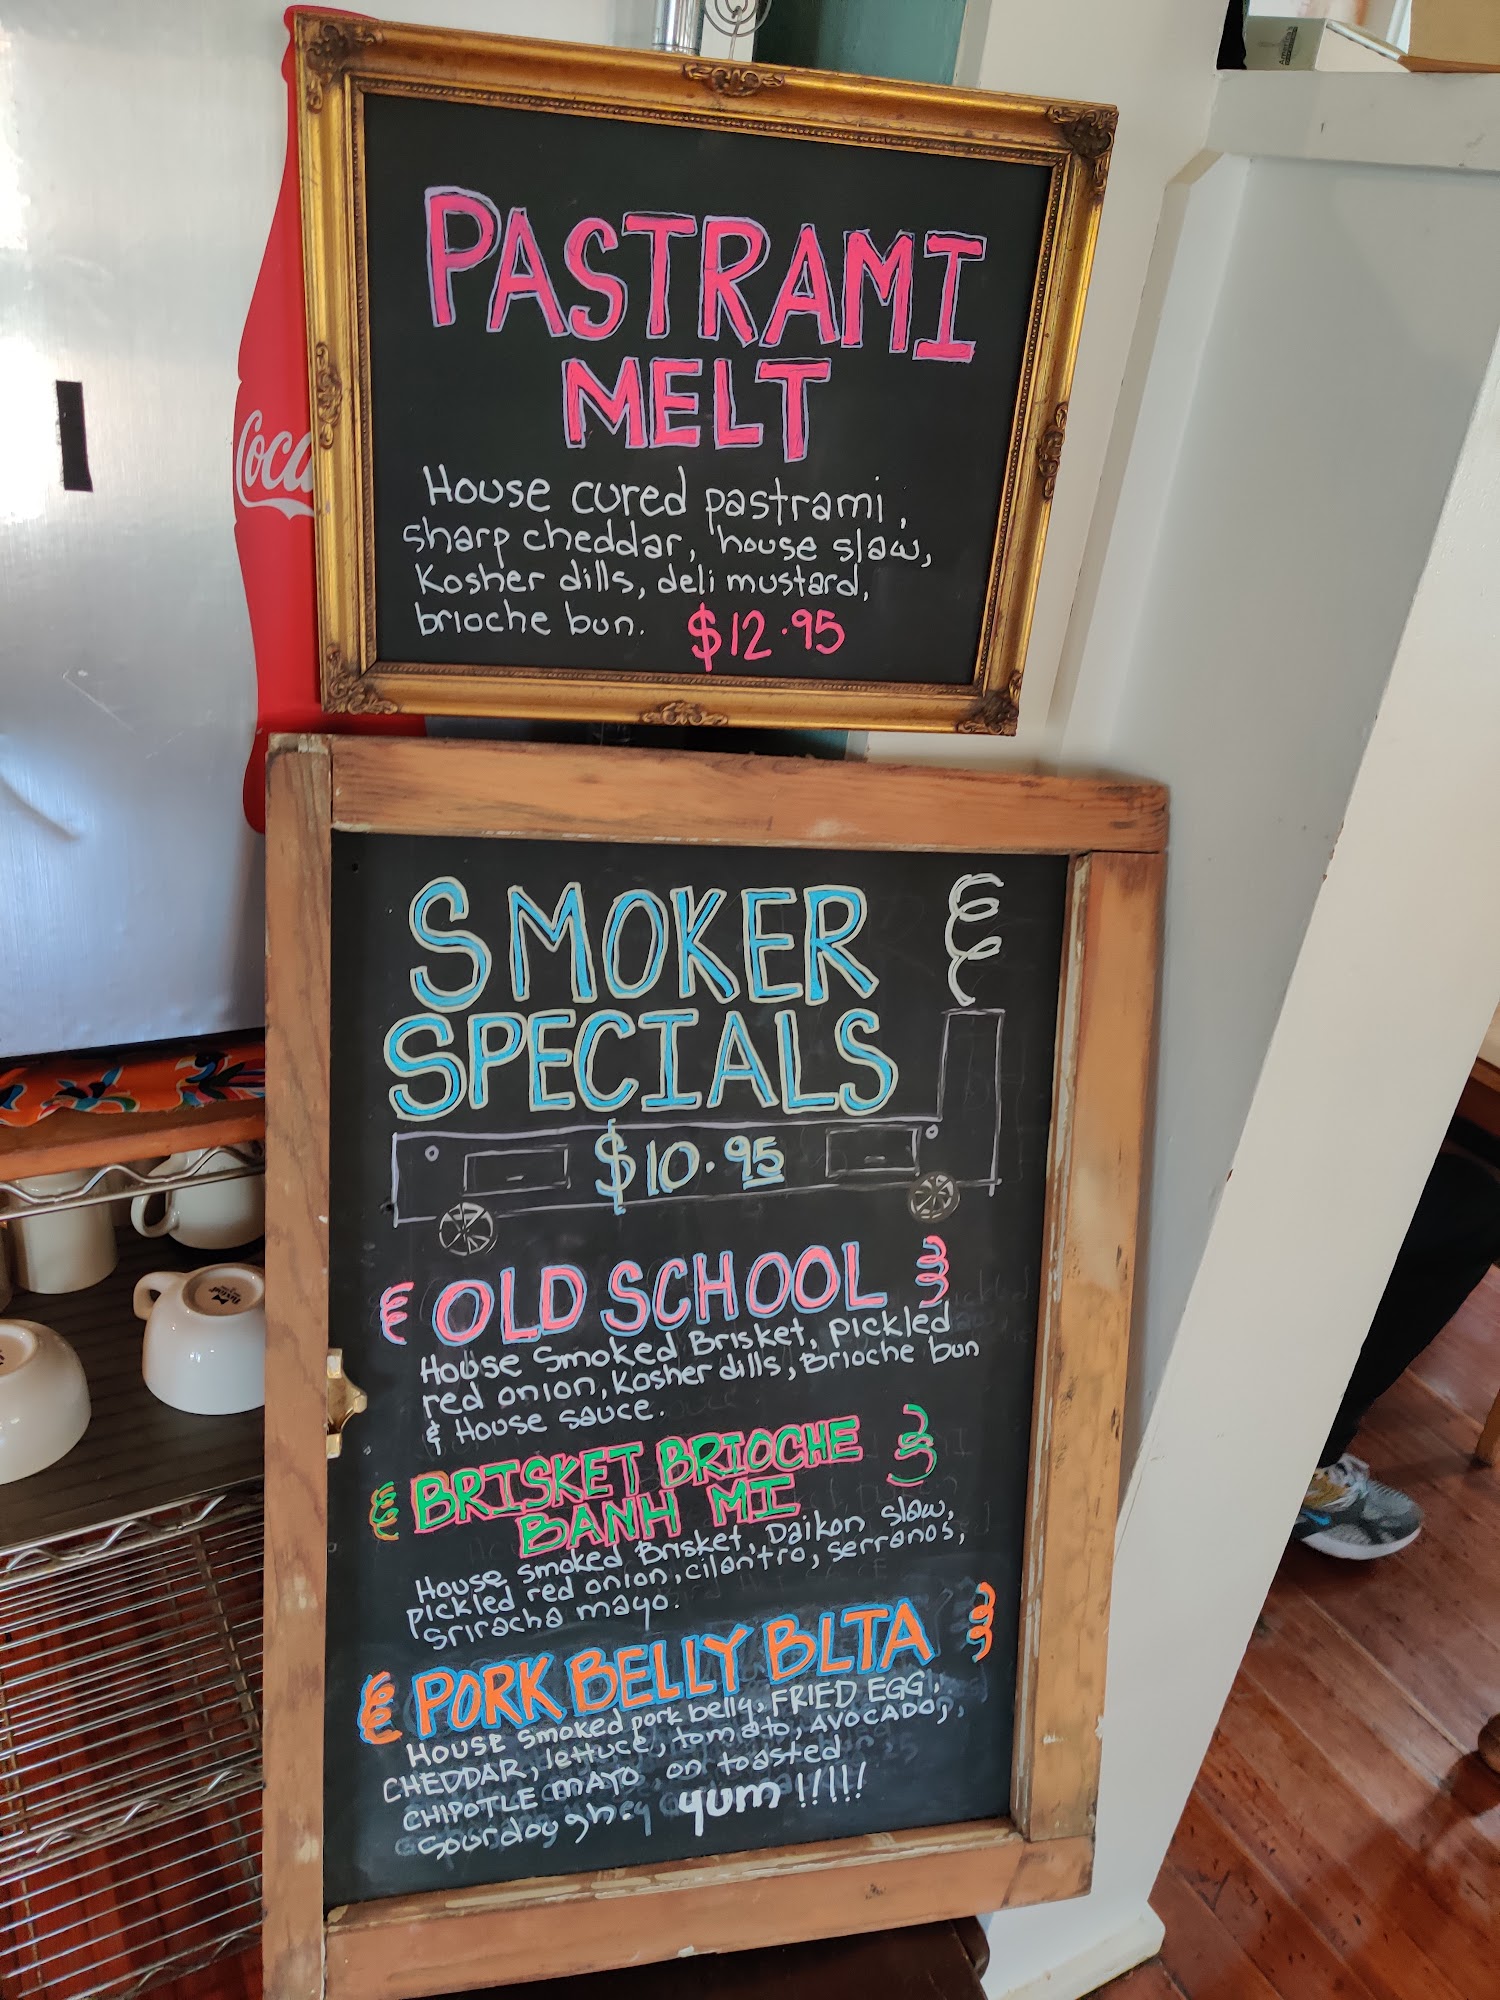 Coca
PASTRAMI
MELT
House cured pastrami,
sharp cheddar, house slaw,
Kosher dills, deli mustard,
brioche bun. $12.95
SMOKER
SPECIALS
$10.95
OLD SCHOOL
House Smoked Brisket, pickled
red onion, Kosher dills, Brioche bun
& House sauce.
BRISKET BRIOCHE
BANH MI
House smoked Brisket, Daikon slaw,
pickled red onion, cilantro, serranos,
sriracha mayo.
PORK BELLY BLTA
HOUSE smoked pork belly, FRIED EGG,
CHEDDAR, lettuce, tomato, AVOCADO,
CHIPOTLE MAYO on toasted
sourdough. yum !!!!!